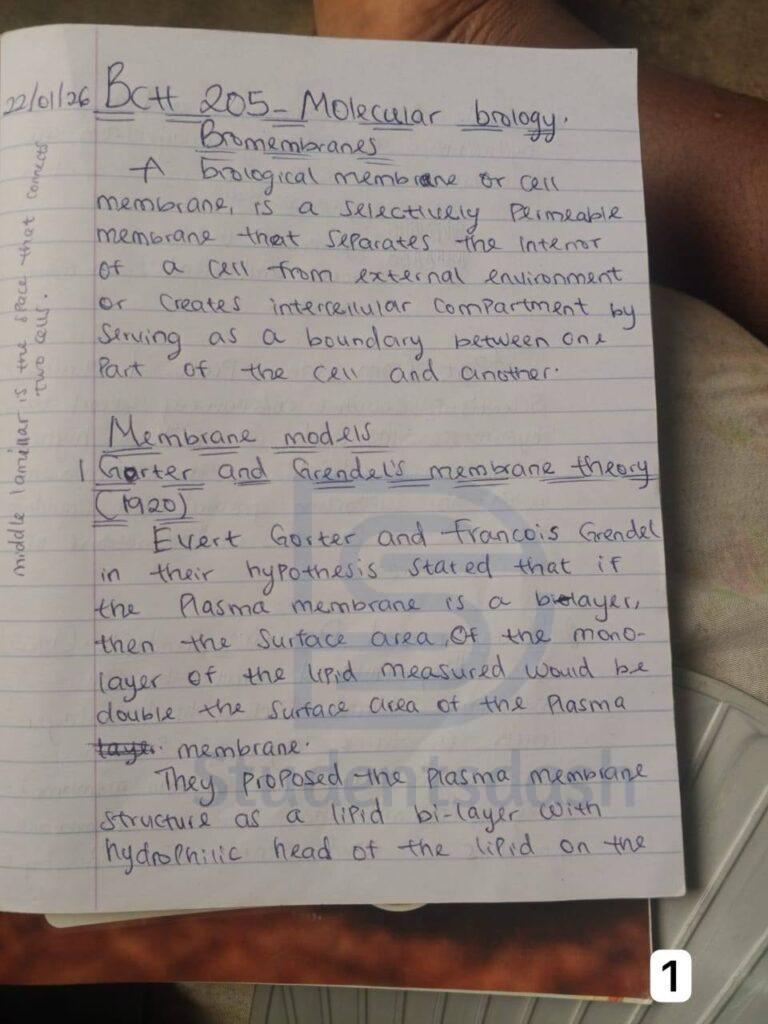 22/01/26 BCH 205- Molecular biology.
Biomembranes
A biological membrane or cell
membrane, is a selectively permeable
membrane that separates the interior
of a cell from external environment
or creates intercellular compartment by
serving as a boundary between one
part of the cell and another.
Membrane models
1 Gorter and Grendel's membrane theory
(1920)
Evert Gorter and Francois Grendel
in their hypothesis stated that if
the Plasma membrane is a bilayer,
then the surface area of the mono-
layer of the lipid measured would be
double the surface area of the Plasma
layer. membrane.
They proposed the plasma membrane
structure as a lipid bi-layer with
hydrophilic head of the lipid on the
middle lamellar is the space that connects
two cells.
Studentsdash
1